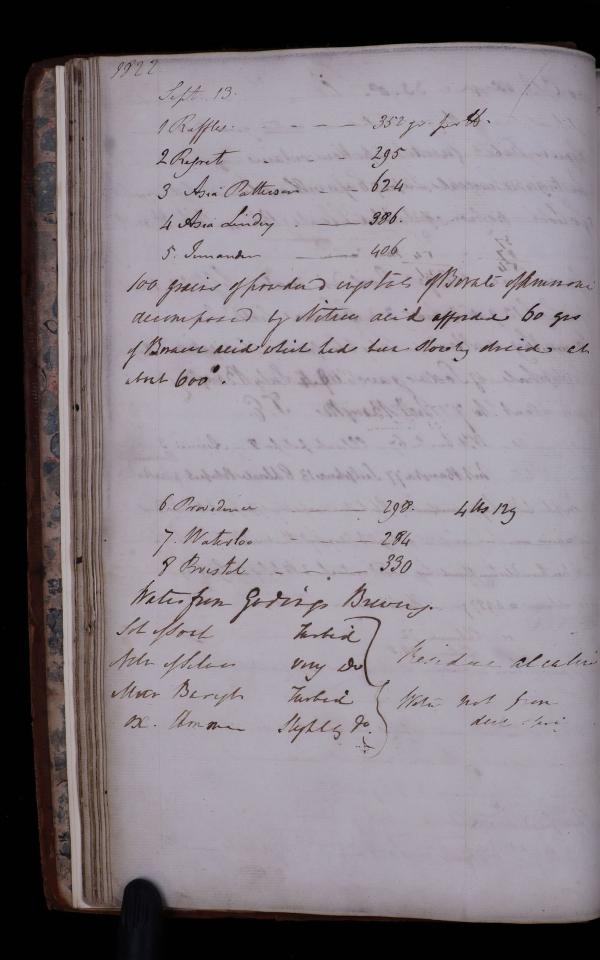 1822
Sept. 13.
1 Raffles - - - 352 grs. per lb.
2 Regret - 295
3 Asia Patterson 624
4 Asia Lindsay - - 386.
5. - 406
100 grains of powdered crystals of Borate of Ammonia
decomposed by Nitric acid afforded 60 grs
of Boracic acid which had been slowly dried at
about 600°.
6. Providence - 298. 4 lbs 129
7. Waterloo - 284
8 Bristol - - 330
Water from Godings Brewery.
Sol of Soap Turbid
Nitr of Silver very Do Residue alcaline
Mur Baryt Turbid Water not from
Ox. Ammon Slightly Do. deep